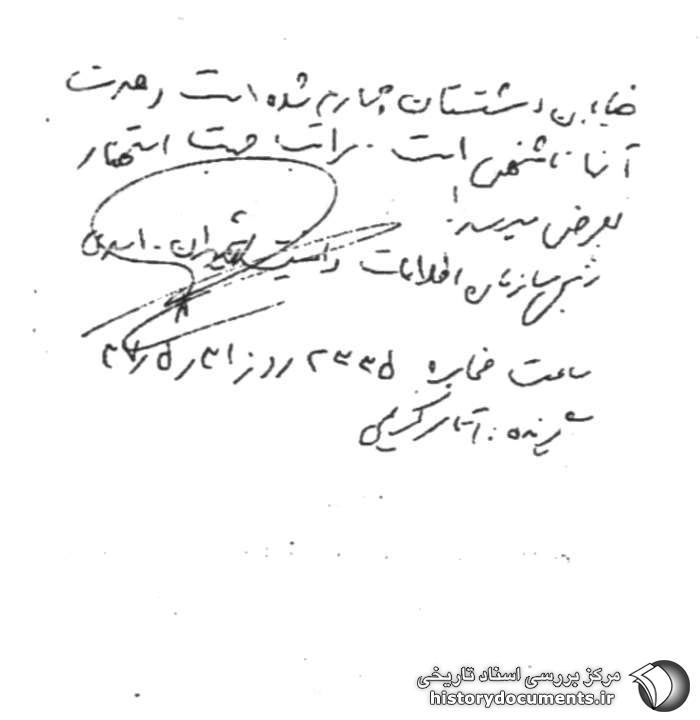 خیابان دشتستان چهارم شده است و هویت
آنها نامشخص است. مراتب جهت استحضار
بعرض میرسد.
رئیس سازمان اطلاعات و امنیت تهران.
ساعت مخابره ۲۳۳۵ روز ۳۱ر۵ر۳۷
گیرنده: آقای کریمی
مرکز بررسی اسناد تاریخی
historydocuments.ir